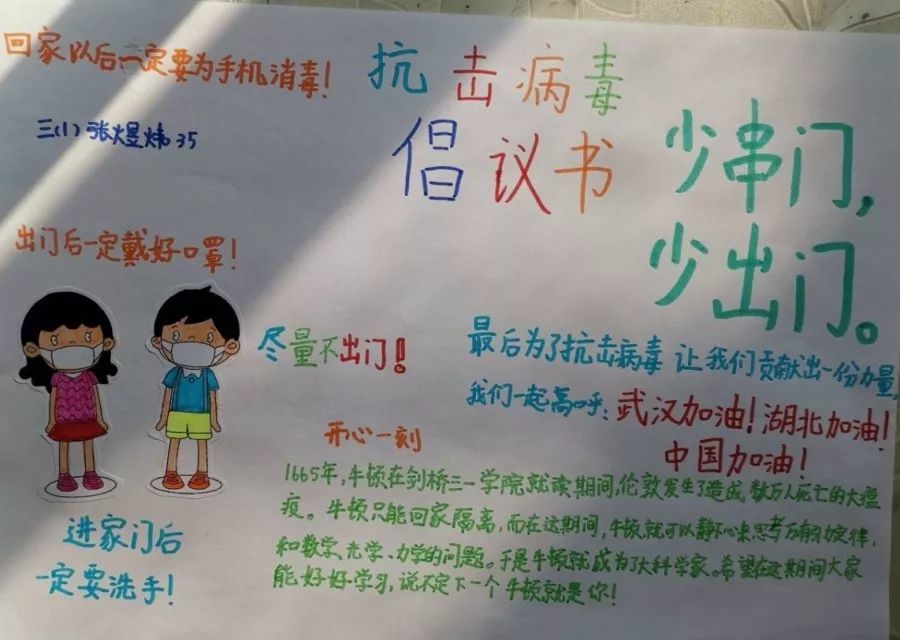 回家以后一定要为手机消毒!
三(1)张煜炜35
抗击病毒
倡议书
少串门,
少出门。
出门后一定戴好口罩!
尽量不出门!
最后为了抗击病毒 让我们贡献出一份力量,
我们一起高呼:武汉加油!湖北加油!
中国加油!
开心一刻
1665年,牛顿在剑桥三一学院就读期间,伦敦发生了造成数万人死亡的大瘟
疫。牛顿只能回家隔离,而在这期间,牛顿就可以静心来思考万有引力定律,
和数学、光学、力学的问题。于是牛顿就成为了大科学家。希望在这期间大家
能好好学习,说不定下一个牛顿就是你!
进家门后
一定要洗手!